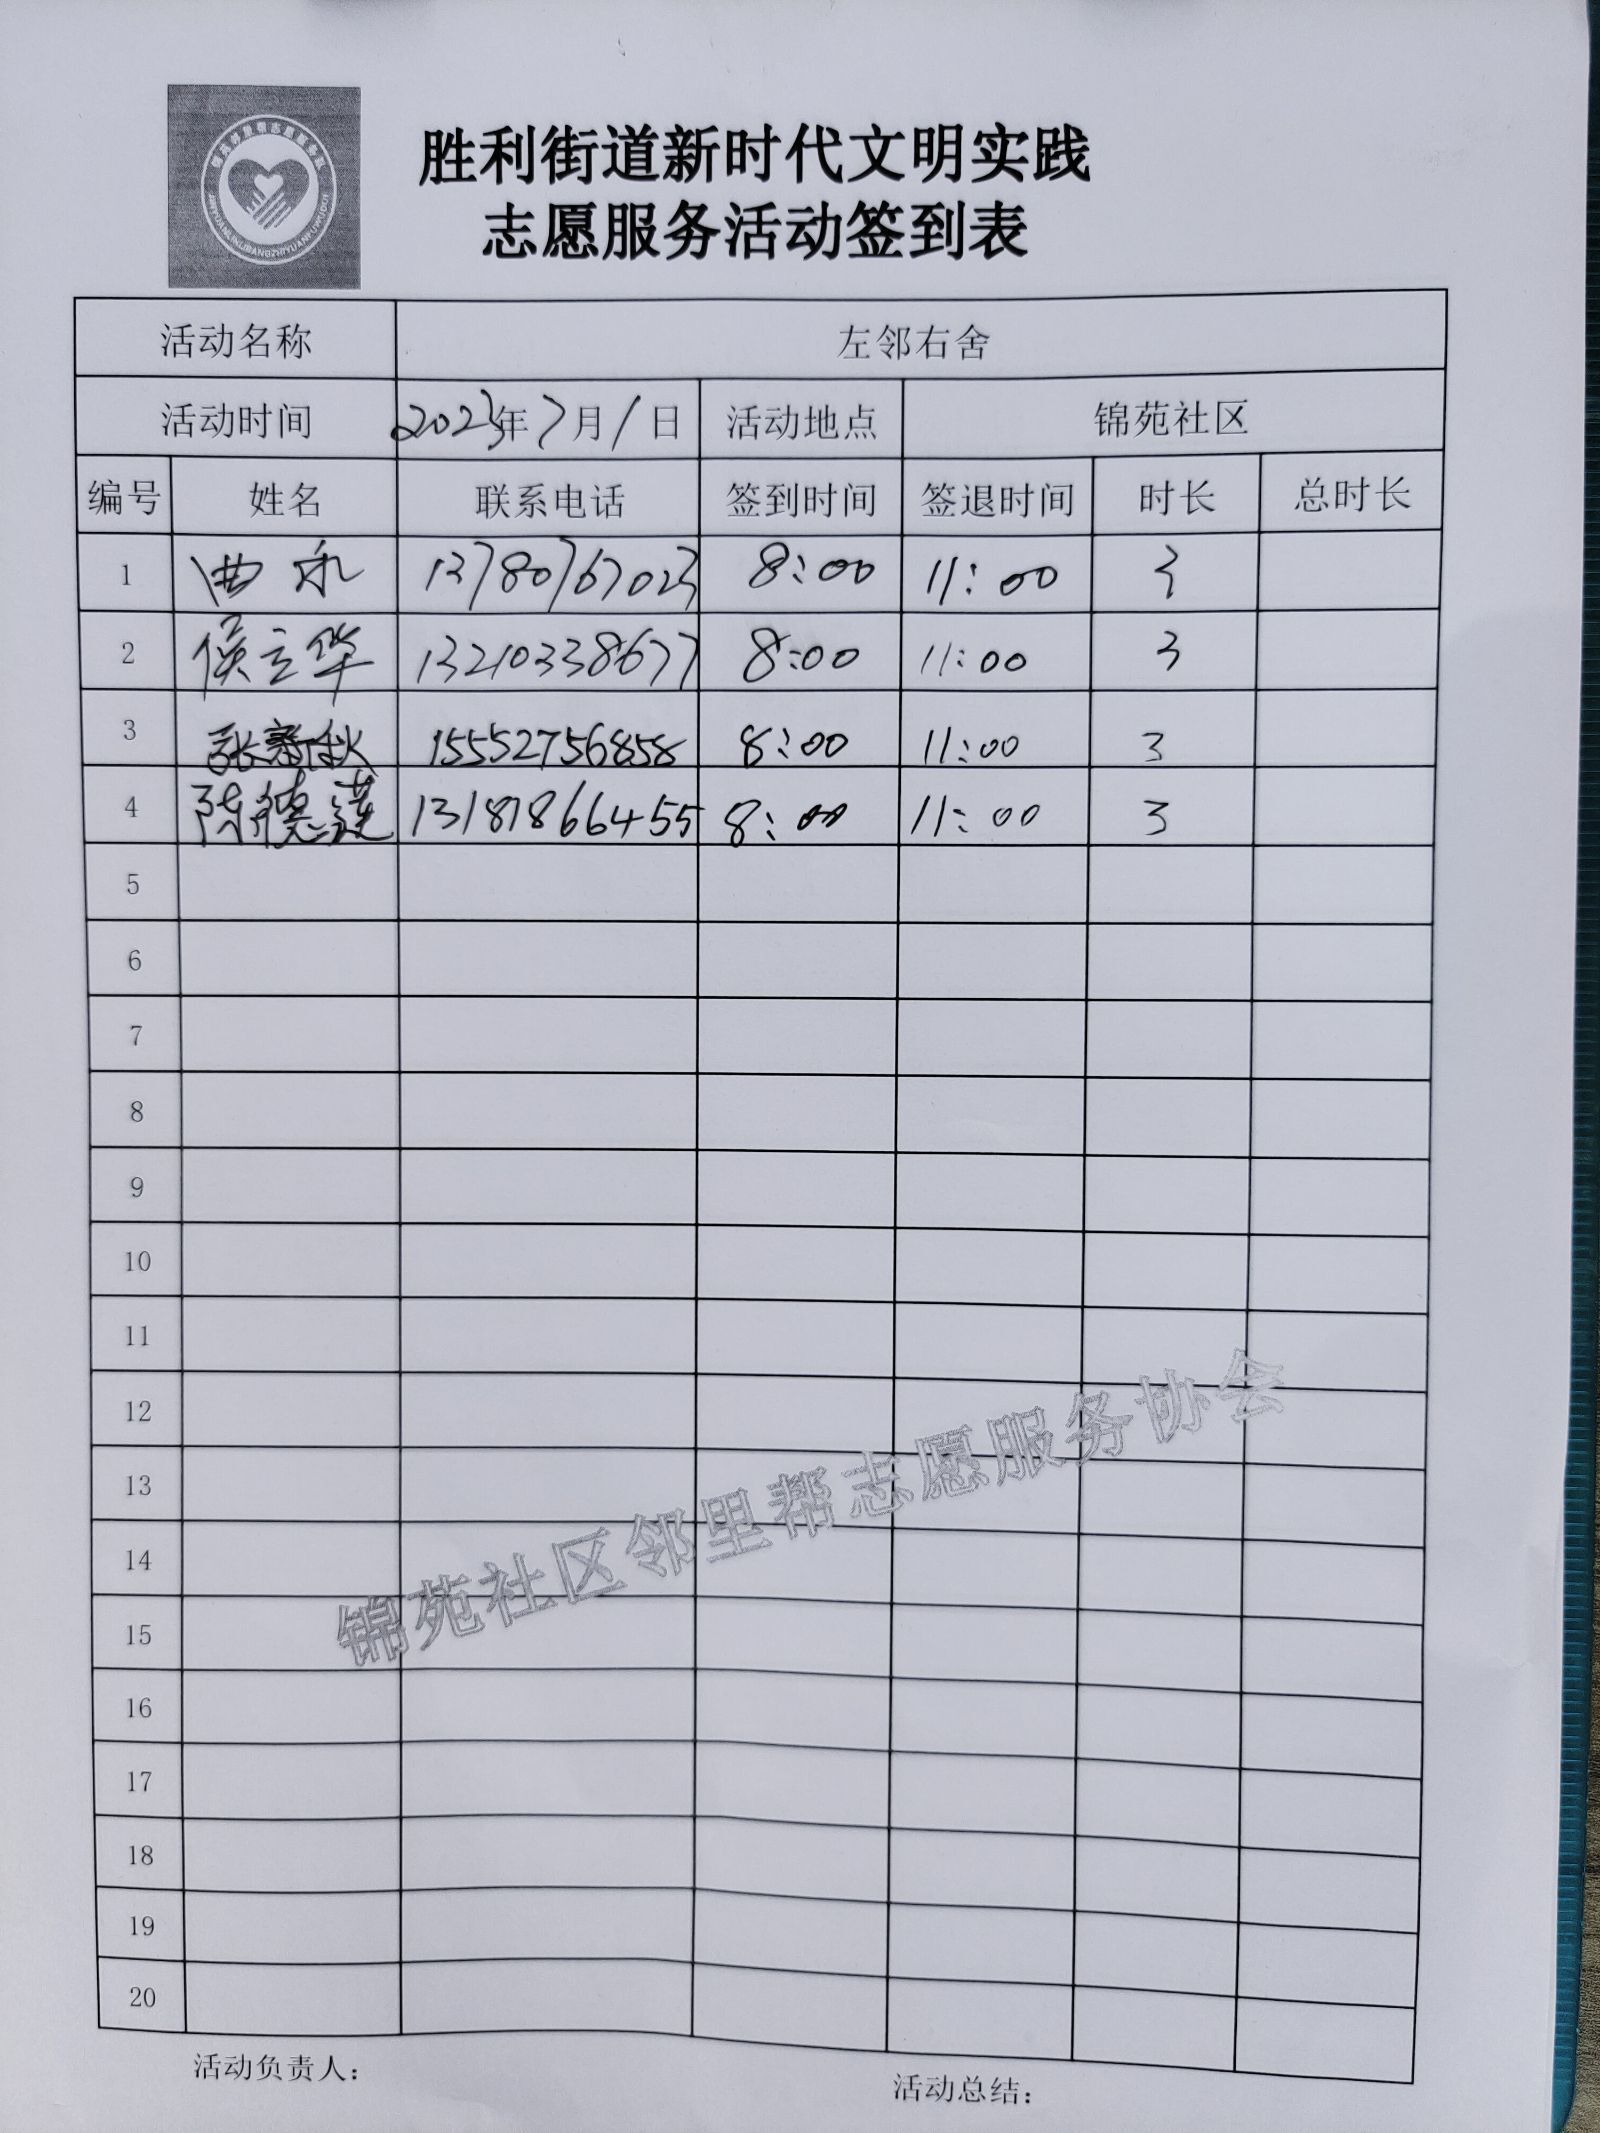 锦苑邻里帮志愿服务队
JINYUANLINLIBANGZHIYUANFUWUDUI
胜利街道新时代文明实践
志愿服务活动签到表
活动名称 左邻右舍
活动时间 2023年7月1日 活动地点 锦苑社区
编号 姓名 联系电话 签到时间 签退时间 时长 总时长
1 曲永 13780767023 8:00 11:00 3
2 侯立华 13210338677 8:00 11:00 3
3 张新秋 15552756858 8:00 11:00 3
4 陈德莲 13181866455 8:00 11:00 3
5
6
7
8
9
10
11
12
13
14
15
16
17
18
19
20
锦苑社区邻里帮志愿服务协会
活动负责人： 活动总结：